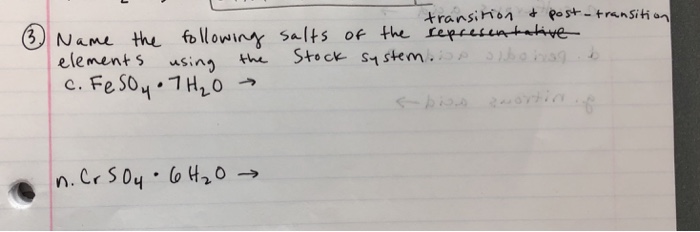 transition & post-transition
③ Name the following salts of the representative
elements using the Stock system.
c. FeSO₄ • 7H₂O →
n. CrSO₄ • 6H₂O →